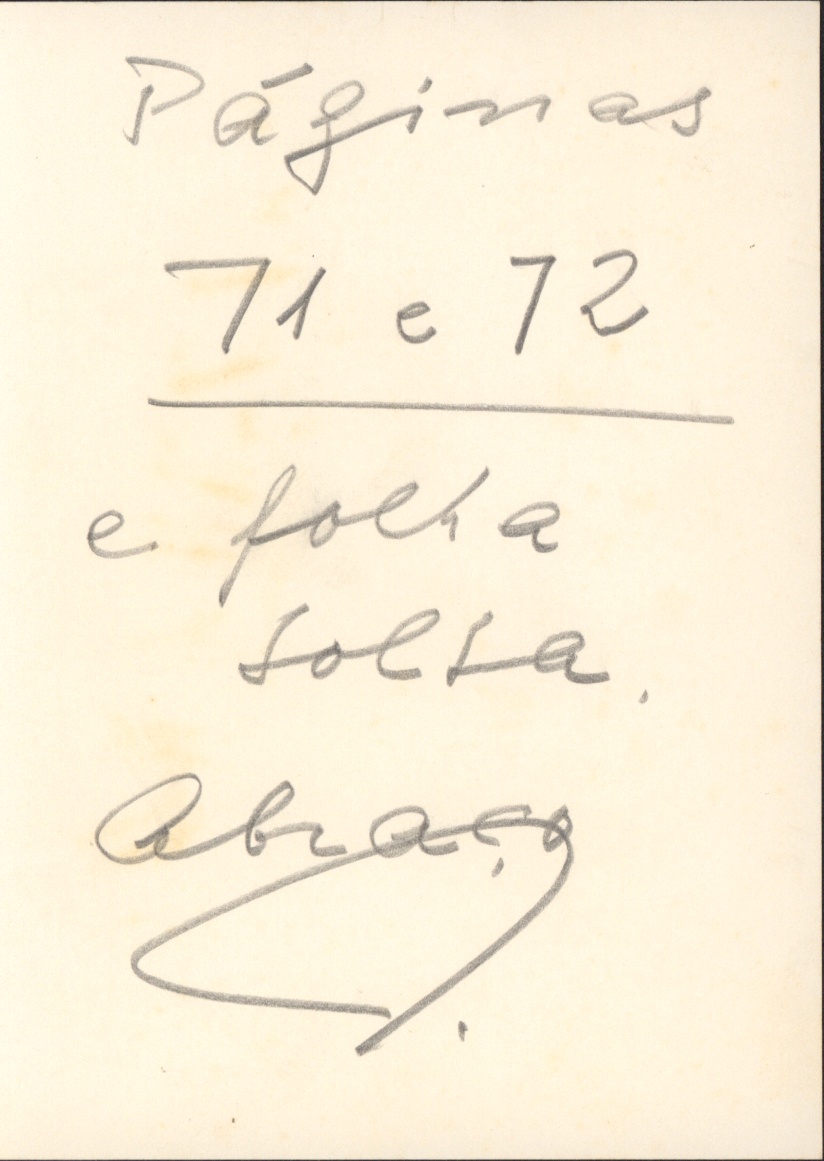 Páginas
71 e 72
e folha
solta.
Abraço